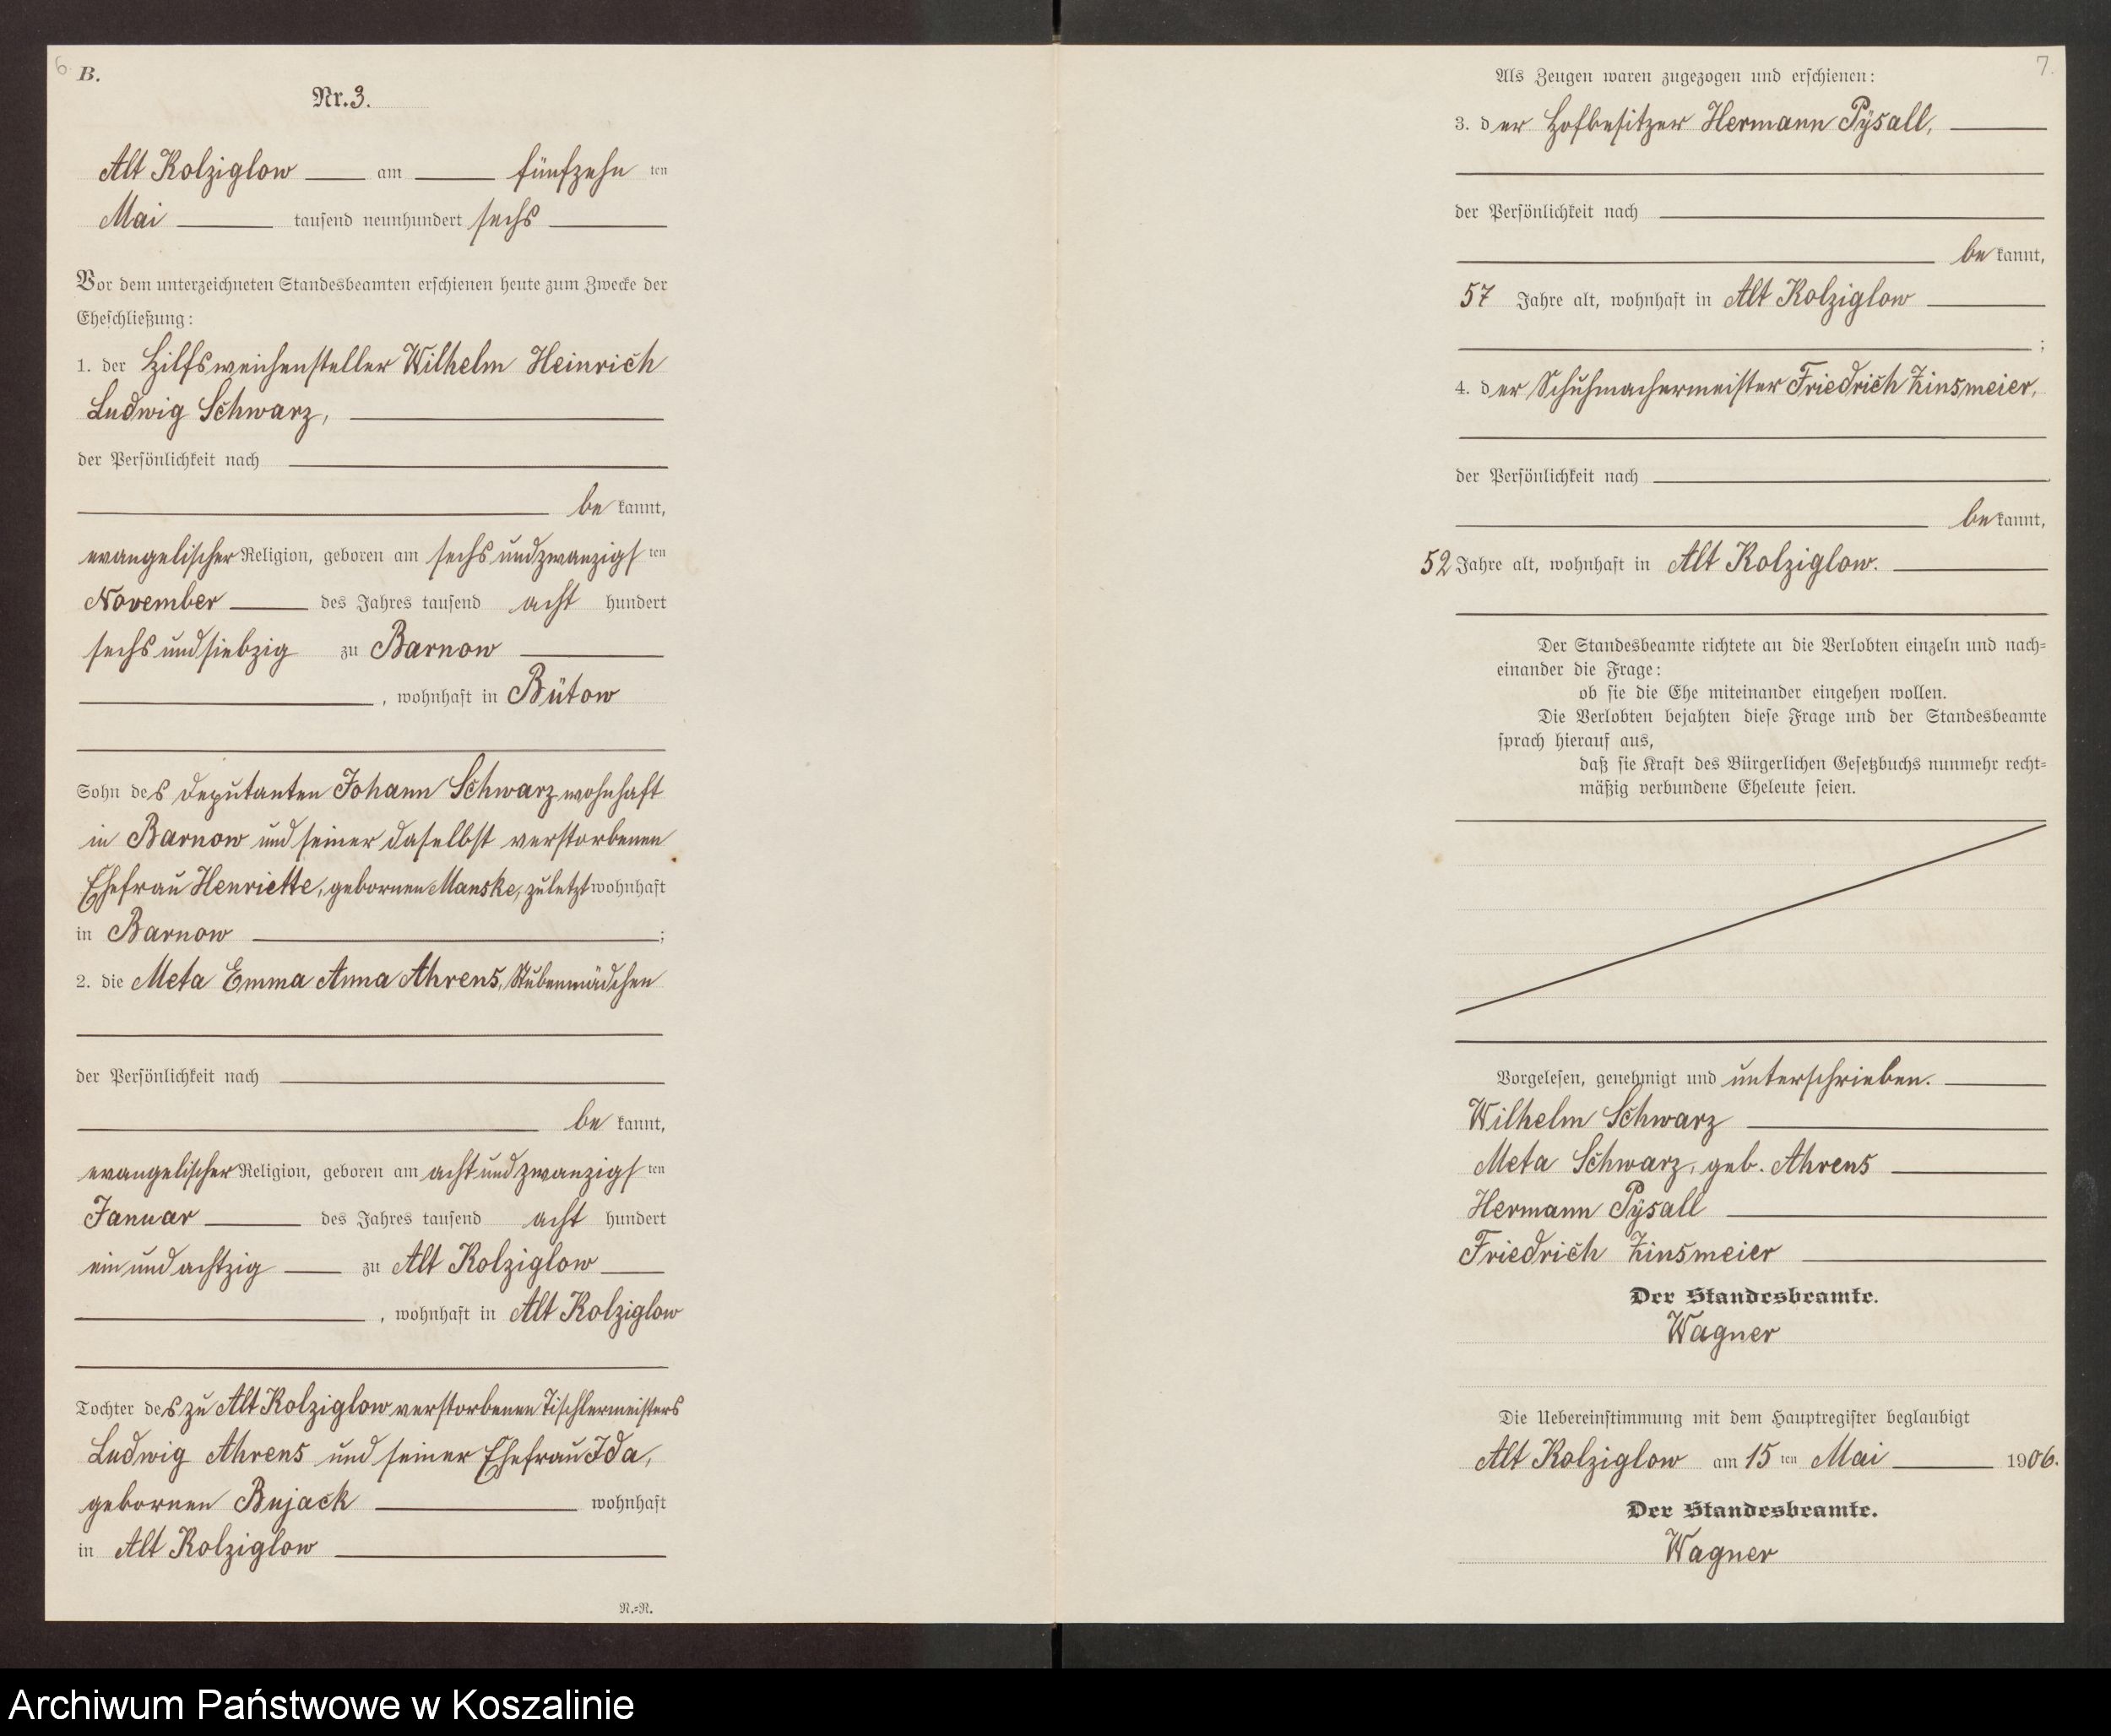 6.
B.
Nr. 3.
Alt Kolziglow am fünfzehn ten
Mai tausend neunhundert sechs
Vor dem unterzeichneten Standesbeamten erschienen heute zum Zwecke der
Eheschließung:
1. der Hilfsweichensteller Wilhelm Heinrich
Ludwig Schwarz,
der Persönlichkeit nach
be kannt,
evangelischer Religion, geboren am sechs und zwanzigs ten
November des Jahres tausend acht hundert
sechs und siebzig zu Barnow
, wohnhaft in Bütow
Sohn des Deputanten Johann Schwarz wohnhaft
in Barnow und seiner daselbst verstorbenen
Ehefrau Henriette, gebornen Manske, zuletzt wohnhaft
in Barnow ;
2. die Meta Emma Anna Ahrens, Stubenmädchen
der Persönlichkeit nach
be kannt,
evangelischer Religion, geboren am acht und zwanzigs ten
Januar des Jahres tausend acht hundert
ein und achtzig zu Alt Kolziglow
, wohnhaft in Alt Kolziglow
Tochter des zu Alt Kolziglow verstorbenen Tischlermeisters
Ludwig Ahrens und seiner Ehefrau Ida,
gebornen Bujack wohnhaft
in Alt Kolziglow
N.=N.
7.
Als Zeugen waren zugezogen und erschienen:
3. der Hofbesitzer Hermann Pÿsall,
der Persönlichkeit nach
be kannt,
57 Jahre alt, wohnhaft in Alt Kolziglow
;
4. der Schuhmachermeister Friedrich Zinsmeier,
der Persönlichkeit nach
be kannt,
52 Jahre alt, wohnhaft in Alt Kolziglow.
Der Standesbeamte richtete an die Verlobten einzeln und nach=
einander die Frage:
ob sie die Ehe miteinander eingehen wollen.
Die Verlobten bejahten diese Frage und der Standesbeamte
sprach hierauf aus,
daß sie Kraft des Bürgerlichen Gesetzbuchs nunmehr recht=
mäßig verbundene Eheleute seien.
Vorgelesen, genehmigt und unterschrieben.
Wilhelm Schwarz
Meta Schwarz, geb. Ahrens
Hermann Pÿsall
Friedrich Zinsmeier
Der Standesbeamte.
Wagner
Die Uebereinstimmung mit dem Hauptregister beglaubigt
Alt Kolziglow am 15 ten Mai 1906.
Der Standesbeamte.
Wagner
Archiwum Państwowe w Koszalinie